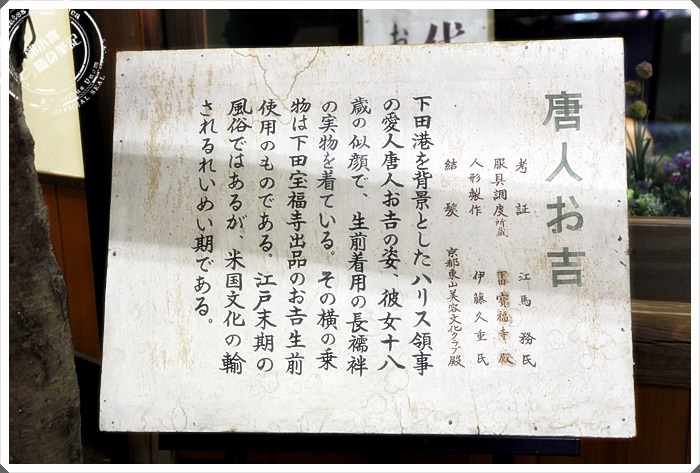 唐人お吉
考証 江馬務氏
服具調度所蔵 下田宝福寺殿
人形製作 伊藤久重氏
結髪 京都東山美容文化クラブ殿
下田港を背景としたハリス領事
の愛人唐人お吉の姿、彼女十八
歳の似顔で、生前着用の長襦袢
の実物を着ている。その横の乗
物は下田宝福寺出品のお吉生前
使用のものである。江戸末期の
風俗ではあるが、米国文化の輸
されるれいめい期である。